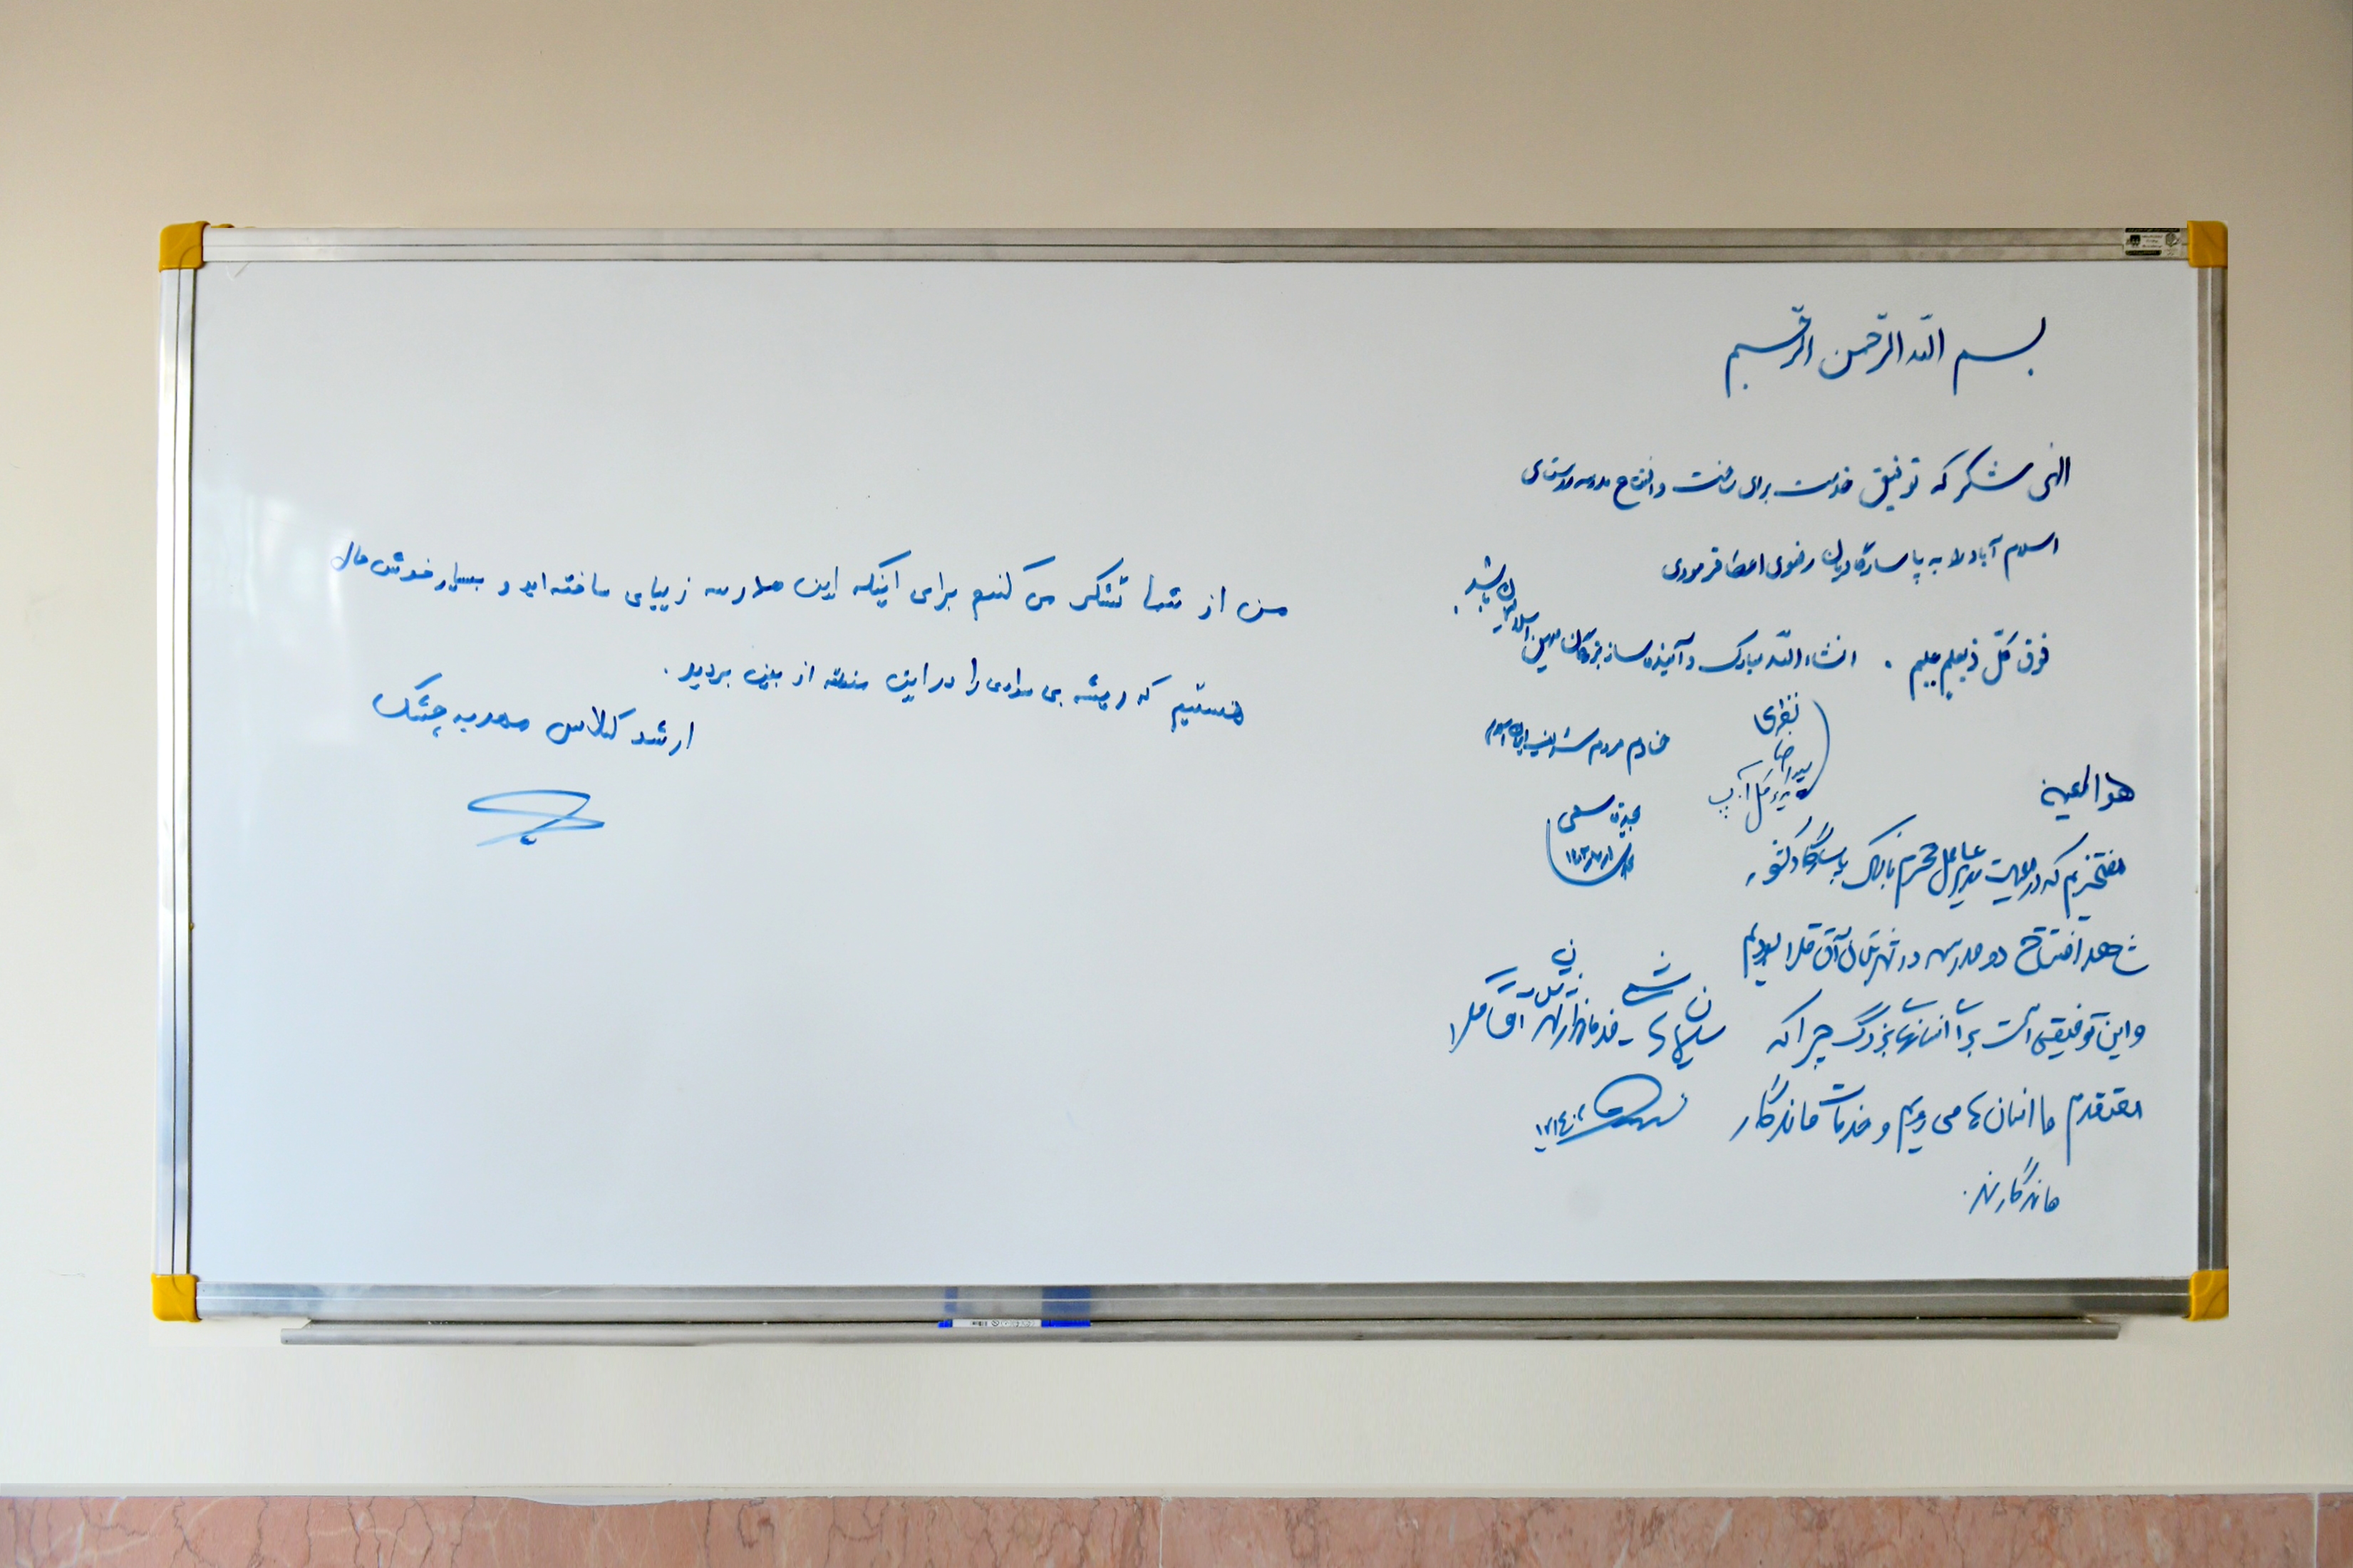 بسم الله الرحمن الرحیم
الهی شکر که توفیق خدمت برای ساخت و افتتاح مدرسه روستای
اسلام آباد را به پاسارگادیان رضوی اعطا فرمودی
فوق کل ذی علم علیم . انشاءالله مبارک و آینده ساز بزرگان میهن اسلامی ایران باشد.
خادم مردم شریف ایران اسلامی
هوالمعین
مفتخریم که در معیت مدیر عامل محترم بانک پاسارگاد کشور
شاهد افتتاح دو مدرسه در شهرستان آق قلا بودیم
و این توفیقی است برای انسانهای بزرگ چرا که
معتقدم ما انسان ها می رویم و خدمات ماندگار
ماندگارند.
فرماندار شهرستان آق قلا
من از شما تشکر می کنم برای اینکه این مدرسه زیبایی ساخته اید و بسیار خوش حال
هستیم که ریشه بی سوادی را در این منطقه از بین بردید.
ارشد کلاس مهدیه چشک